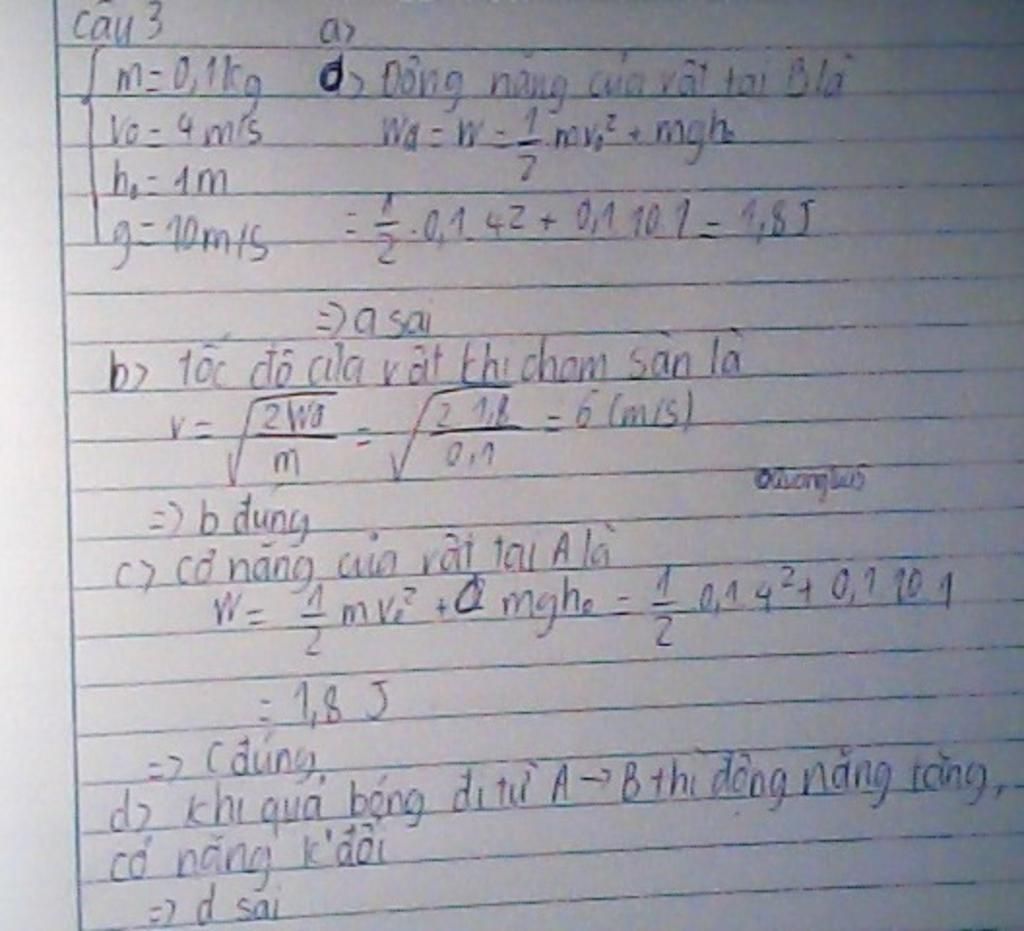 Câu 3 a>
m = 0,1 kg a> Động năng của vật tại B là
v0 = 4 m/s Wđ = W = 1/2 mv0² + mgh0
h0 = 1m
g = 10m/s = 1/2 . 0,1 4² + 0,1 10 1 = 1,8J
=> a sai
b> tốc độ của vật khi chạm sàn là
v = √(2Wđ/m) = √(2 1,8/0,1) = 6 (m/s)
=> b đúng
c> cơ năng của vật tại A là
W = 1/2 mv0² + mgh0 = 1/2 0,1 4² + 0,1 10 1
= 1,8 J
=> c đúng
d> Khi quả bóng đi từ A → B thì động năng tăng,
cơ năng k' đổi
=> d sai